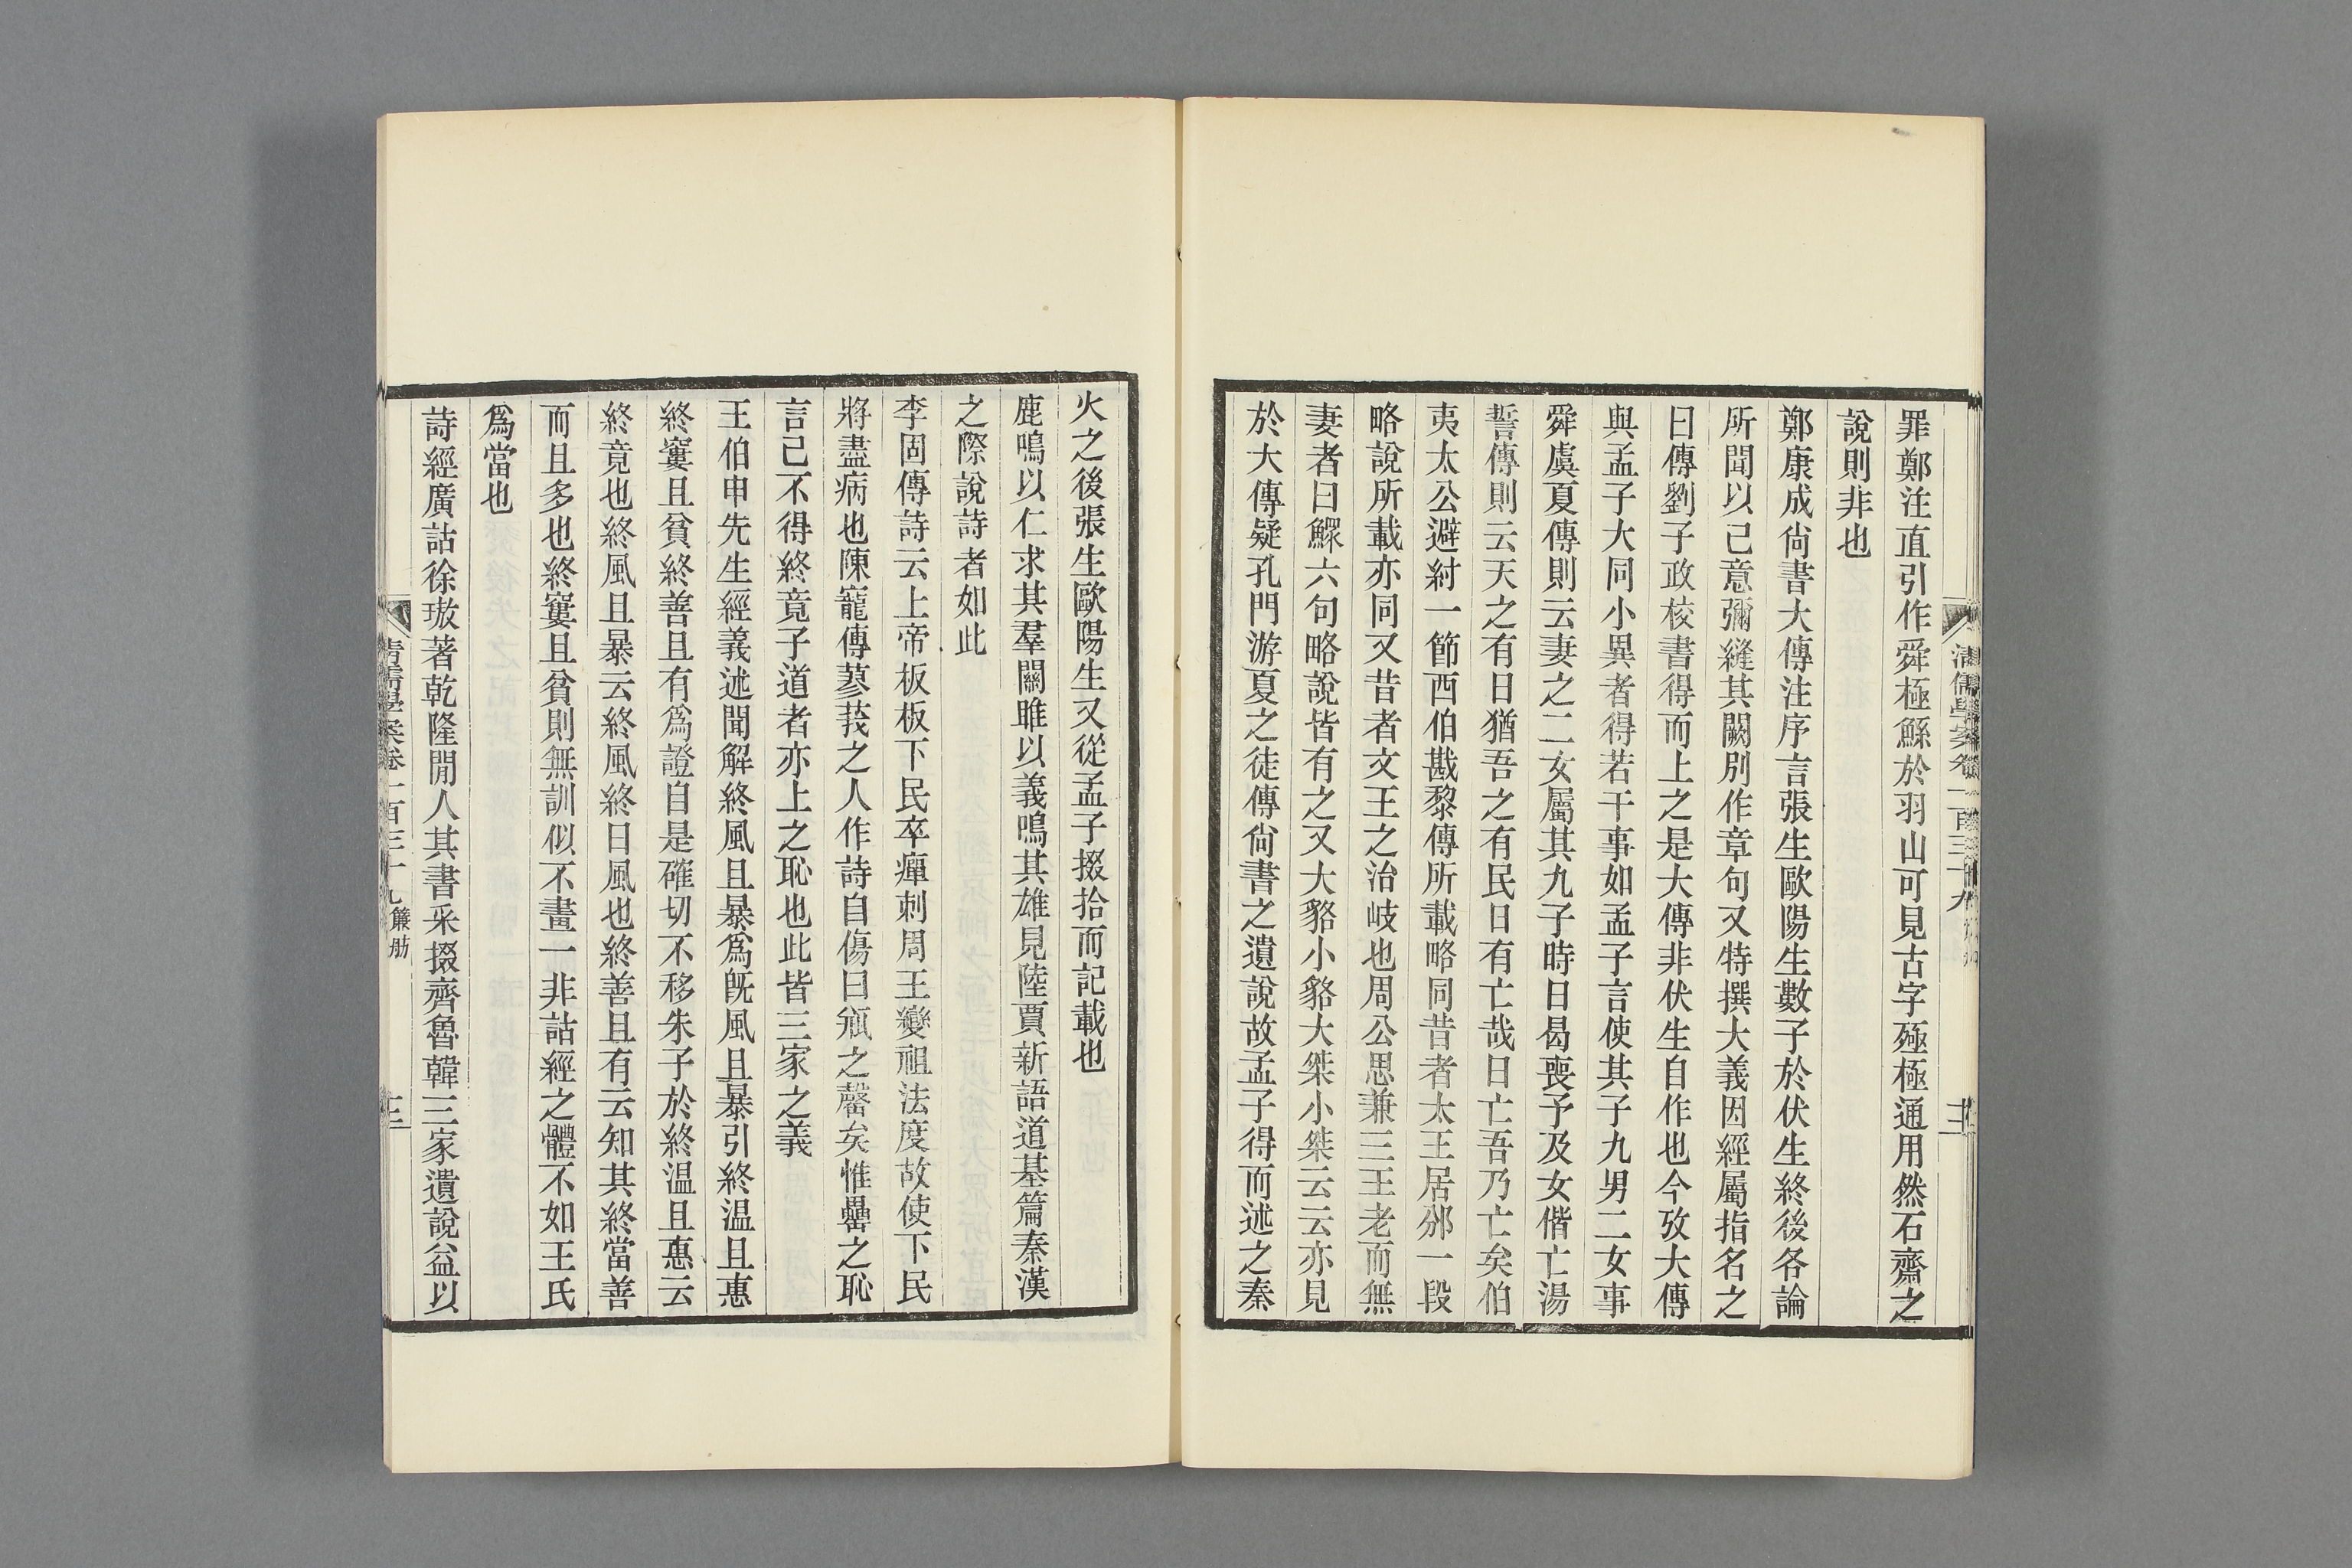 罪鄭注直引作舜極鯀於羽山可見古字殛極通用然石齋之
說則非也
鄭康成尙書大傳注序言張生歐陽生數子於伏生終後各論
所聞以己意彌縫其闕別作章句又特撰大義因經屬指名之
曰傳劉子政校書得而上之是大傳非伏生自作也今攷大傳
與孟子大同小異者得若干事如孟子言使其子九男二女事
舜虞夏傳則云妻之二女屬其九子時日曷喪予及女偕亡湯
誓傳則云天之有日猶吾之有民日有亡哉日亡吾乃亡矣伯
夷太公避紂一節西伯戡黎傳所載略同昔者太王居邠一段
略說所載亦同又昔者文王之治岐也周公思兼三王老而無
妻者曰鰥六句略說皆有之又大貉小貉大桀小桀云云亦見
於大傳疑孔門游夏之徒傳尙書之遺說故孟子得而述之秦
清儒學案卷一百三十九
火之後張生歐陽生又從孟子掇拾而記載也
鹿鳴以仁求其羣關雎以義鳴其雄見陸賈新語道基篇秦漢
之際說詩者如此
李固傳詩云上帝板板下民卒癉刺周王變祖法度故使下民
將盡病也陳寵傳蓼莪之人作詩自傷曰缾之罄矣惟罍之恥
言己不得終竟子道者亦上之恥也此皆三家之義
王伯申先生經義述聞解終風且暴爲旣風且暴引終温且惠
終窶且貧終善且有爲證自是確切不移朱子於終温且惠云
終竟也終風且暴云終風終日風也終善且有云知其終當善
而且多也終窶且貧則無訓似不畫一非詁經之體不如王氏
爲當也
詩經廣詁徐璈著乾隆閒人其書采掇齊魯韓三家遺說益以
清儒學案卷一百三十九 簾舫